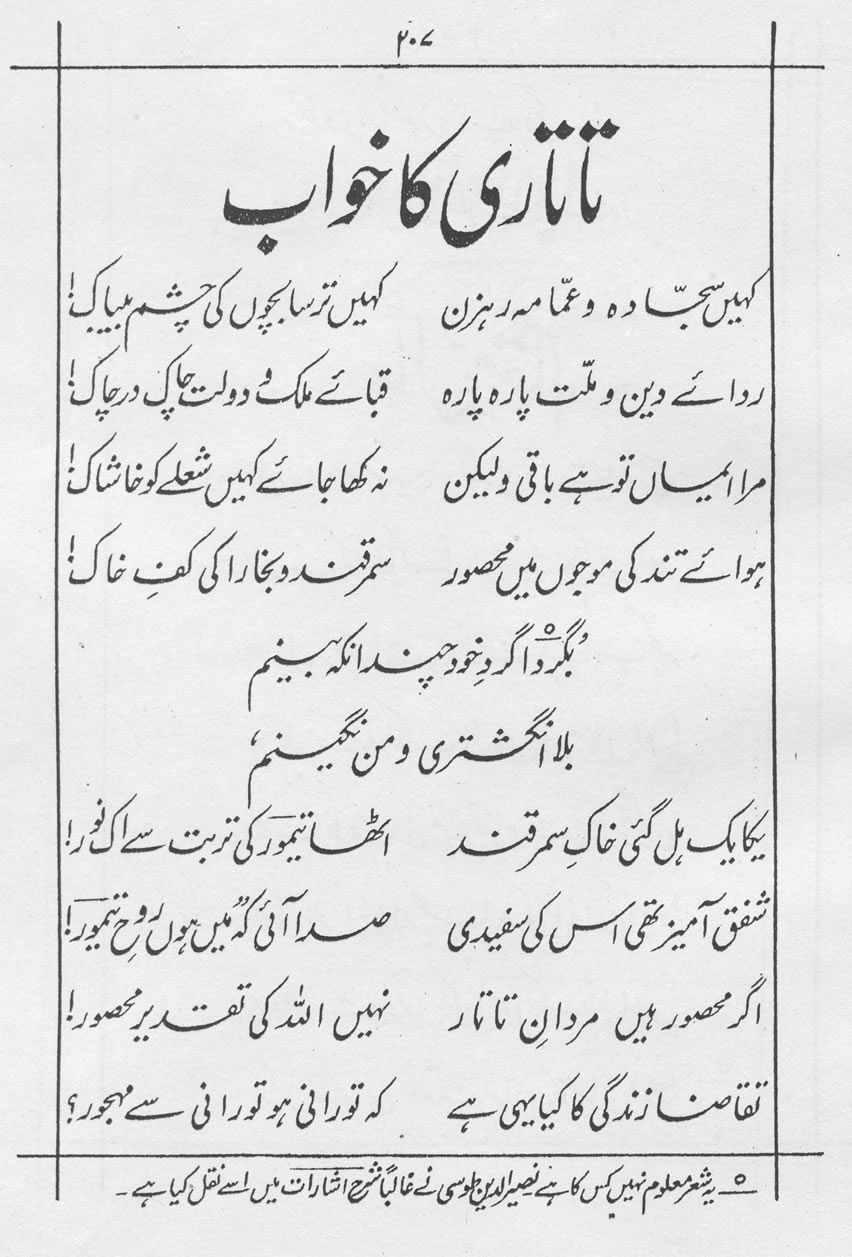 ۲۰۷
تاتاری کا خواب
کہیں سجّادہ و عمّامہ رہزن کہیں ترسا بچوں کی چشمِ بیباک!
ردائے دین و ملّت پارہ پارہ قبائے ملک و دولت چاک در چاک!
مرا ایماں تو ہے باقی ولیکن نہ کھا جائے کہیں شعلے کو خاشاک!
ہوائے تند کی موجوں میں محصور سمرقند و بخارا کی کفِ خاک!
’بگرداگردِ خود چندانکہ بینم
بلا انگشتری و من نگینم‘
یکایک ہل گئی خاکِ سمرقند اٹھا تیمور کی تربت سے اک نور!
شفق آمیز تھی اس کی سفیدی صدا آئی کہ ”میں ہوں روحِ تیمور!
اگر محصور ہیں مردانِ تاتار نہیں اللہ کی تقدیر محصور!
تقاضا زندگی کا کیا یہی ہے کہ تورانی ہو تورانی سے مہجور؟
ہ یہ شعر معلوم نہیں کس کا ہے نصیر الدین طوسی نے غالباً شرح اشارات میں اسے نقل کیا ہے۔